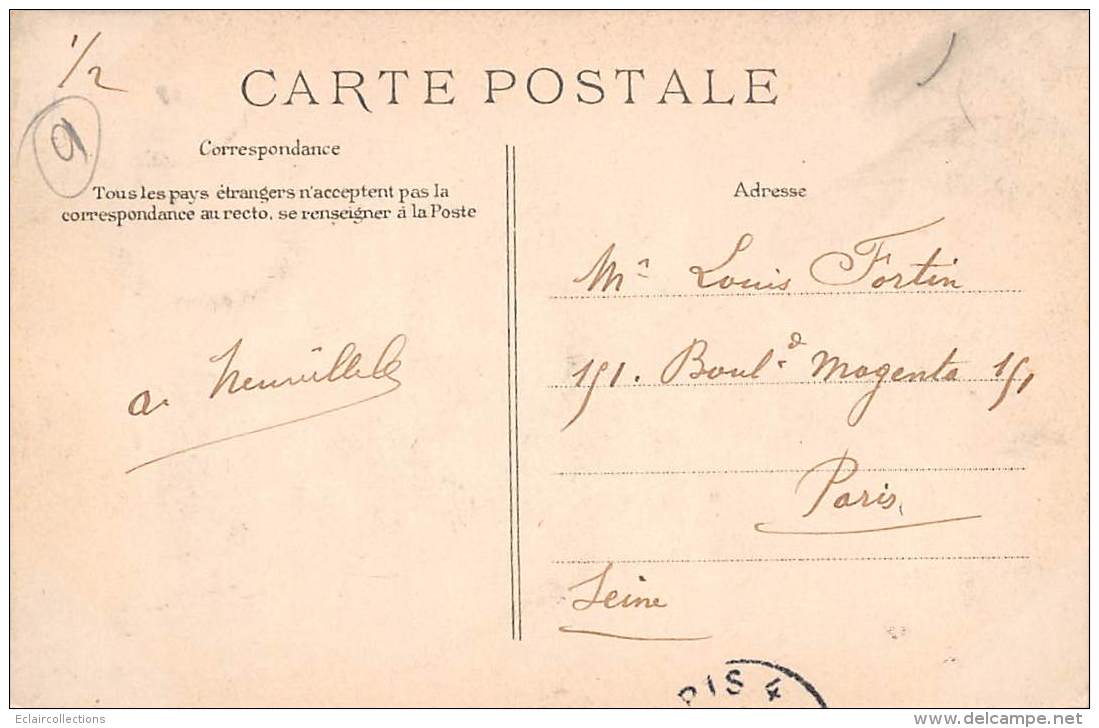 1/2
9
CARTE POSTALE
Correspondance
Tous les pays étrangers n'acceptent pas la
correspondance au recto, se renseigner à la Poste
Adresse
Mr Louis Fortin
151. Boul.d Magenta 151
Paris
Seine
PIS 4
Eclaircollections
delcampe.net